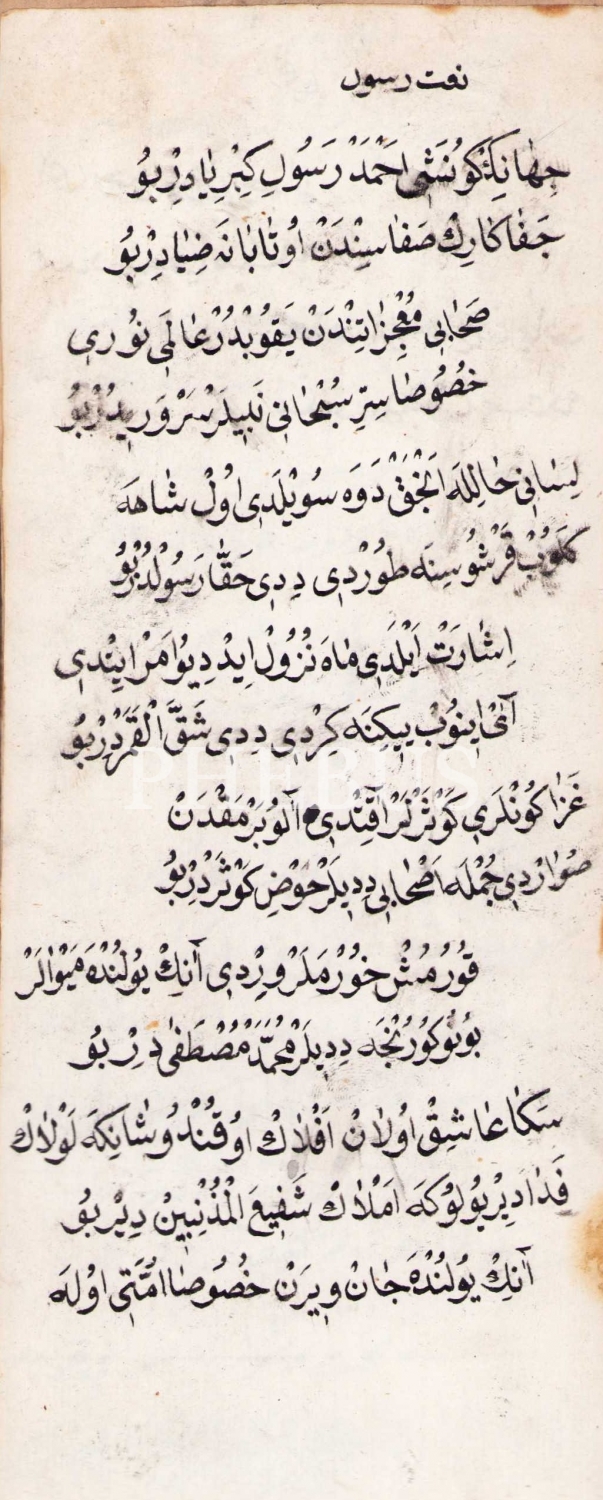 نعت رسول
جِهَانِڭ كُونَشِى اَحْمَدْ رَسُولِ كِبْرِيَا دِرْ بُو
جَفَاكَارِڭ صَفَاسِنْدَنْ اُوتَابَانَه ضِيَا دِرْ بُو
صَحَابِى مُعْجِزَاتِنْدَنْ يَقُوبْدُرْ عَالَمِى نُورِى
خُصُوصَا سِرِّ سُبْحَانِى نَبِيلَرْ سَرْوَرِيدُرْ بُو
لِسَانِى حَالِلَه اَنْجَقْ دَوَه سُويْلَدِى اُولْ شَاهَه
كَلُوبْ قَرْشُوسِنَه طُورْدِى دِدِى حَقَّا رَسُولْدُرْ بُو
اِشَارَتْ اَيْلَدِى مَاهَ نُزُولْ اِيدْ دِيُو اَمْرْ اِيتْدِى
آنِڭ اِينُوبْ يِيكِنَه كِرْدِى دِدِى شَقَّ الْقَمَرْدِرْ بُو
غَزَا كُونْلَرِى كَوْثَرْلَرْ آقِتْدِى اُلُو بَرْمَقْدَنْ
صُوَارْدِى جُمْلَه اَصْحَابِى دِدِيلَرْ حَوْضِ كَوْثَرْدِرْ بُو
قُورُمُشْ خُورْمَلَرْ وِرْدِى آنِڭ يُولُنْدَه مَيْوَالَرْ
بُو بُو كُورُنْجَه دِدِيلَرْ مُحَمَّدْ مُصْطَفَى دِرْ بُو
سَكَا عَاشِقْ اُولَانْ اَفْلَاكْ اُوقُنْدُو شَانِكَه لَوْلَاكْ
فَدَا دِيْرْ بُو لُوكَه اَمْلَاكْ شَفِيعَ الْمُذْنِبِينْ دِيرْ بُو
آنِڭ يُولُنْدَه جَانْ وِيرَنْ خُصُوصَا اُمَّتِى اُولَه